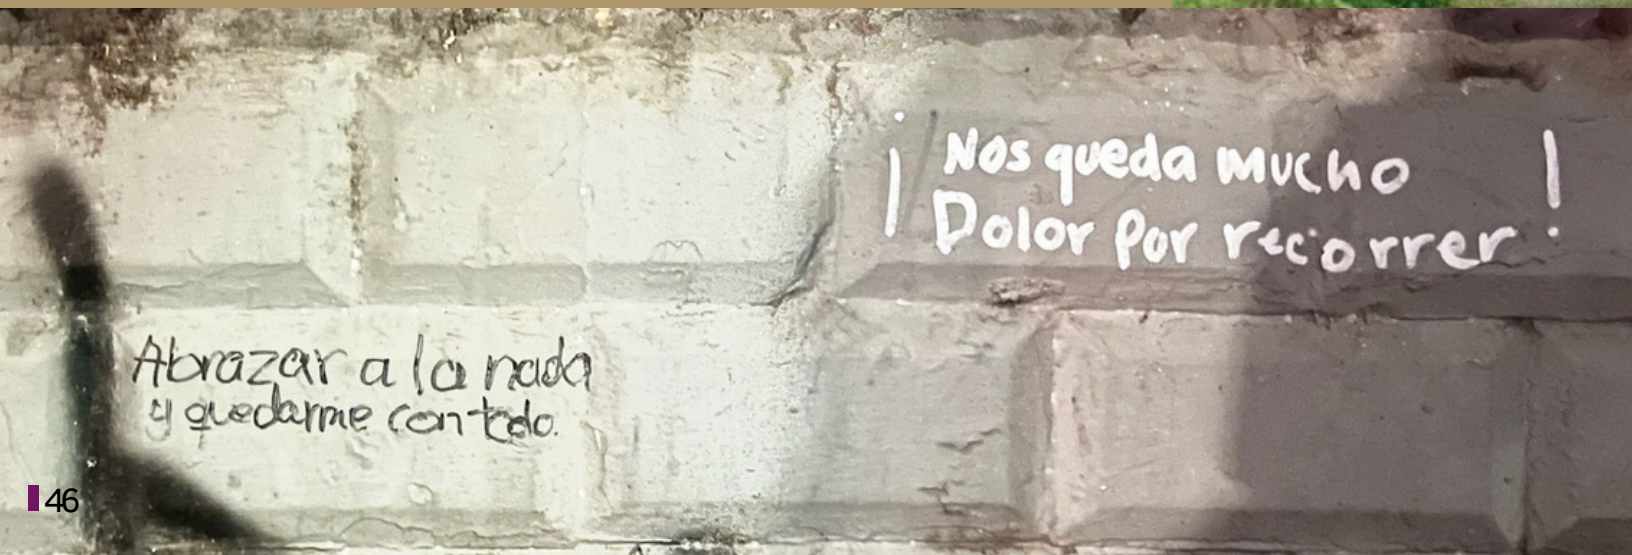 ¡ Nos queda mucho
Dolor Por recorrer !
Abrazar a la nada
y quedarme con todo.
46